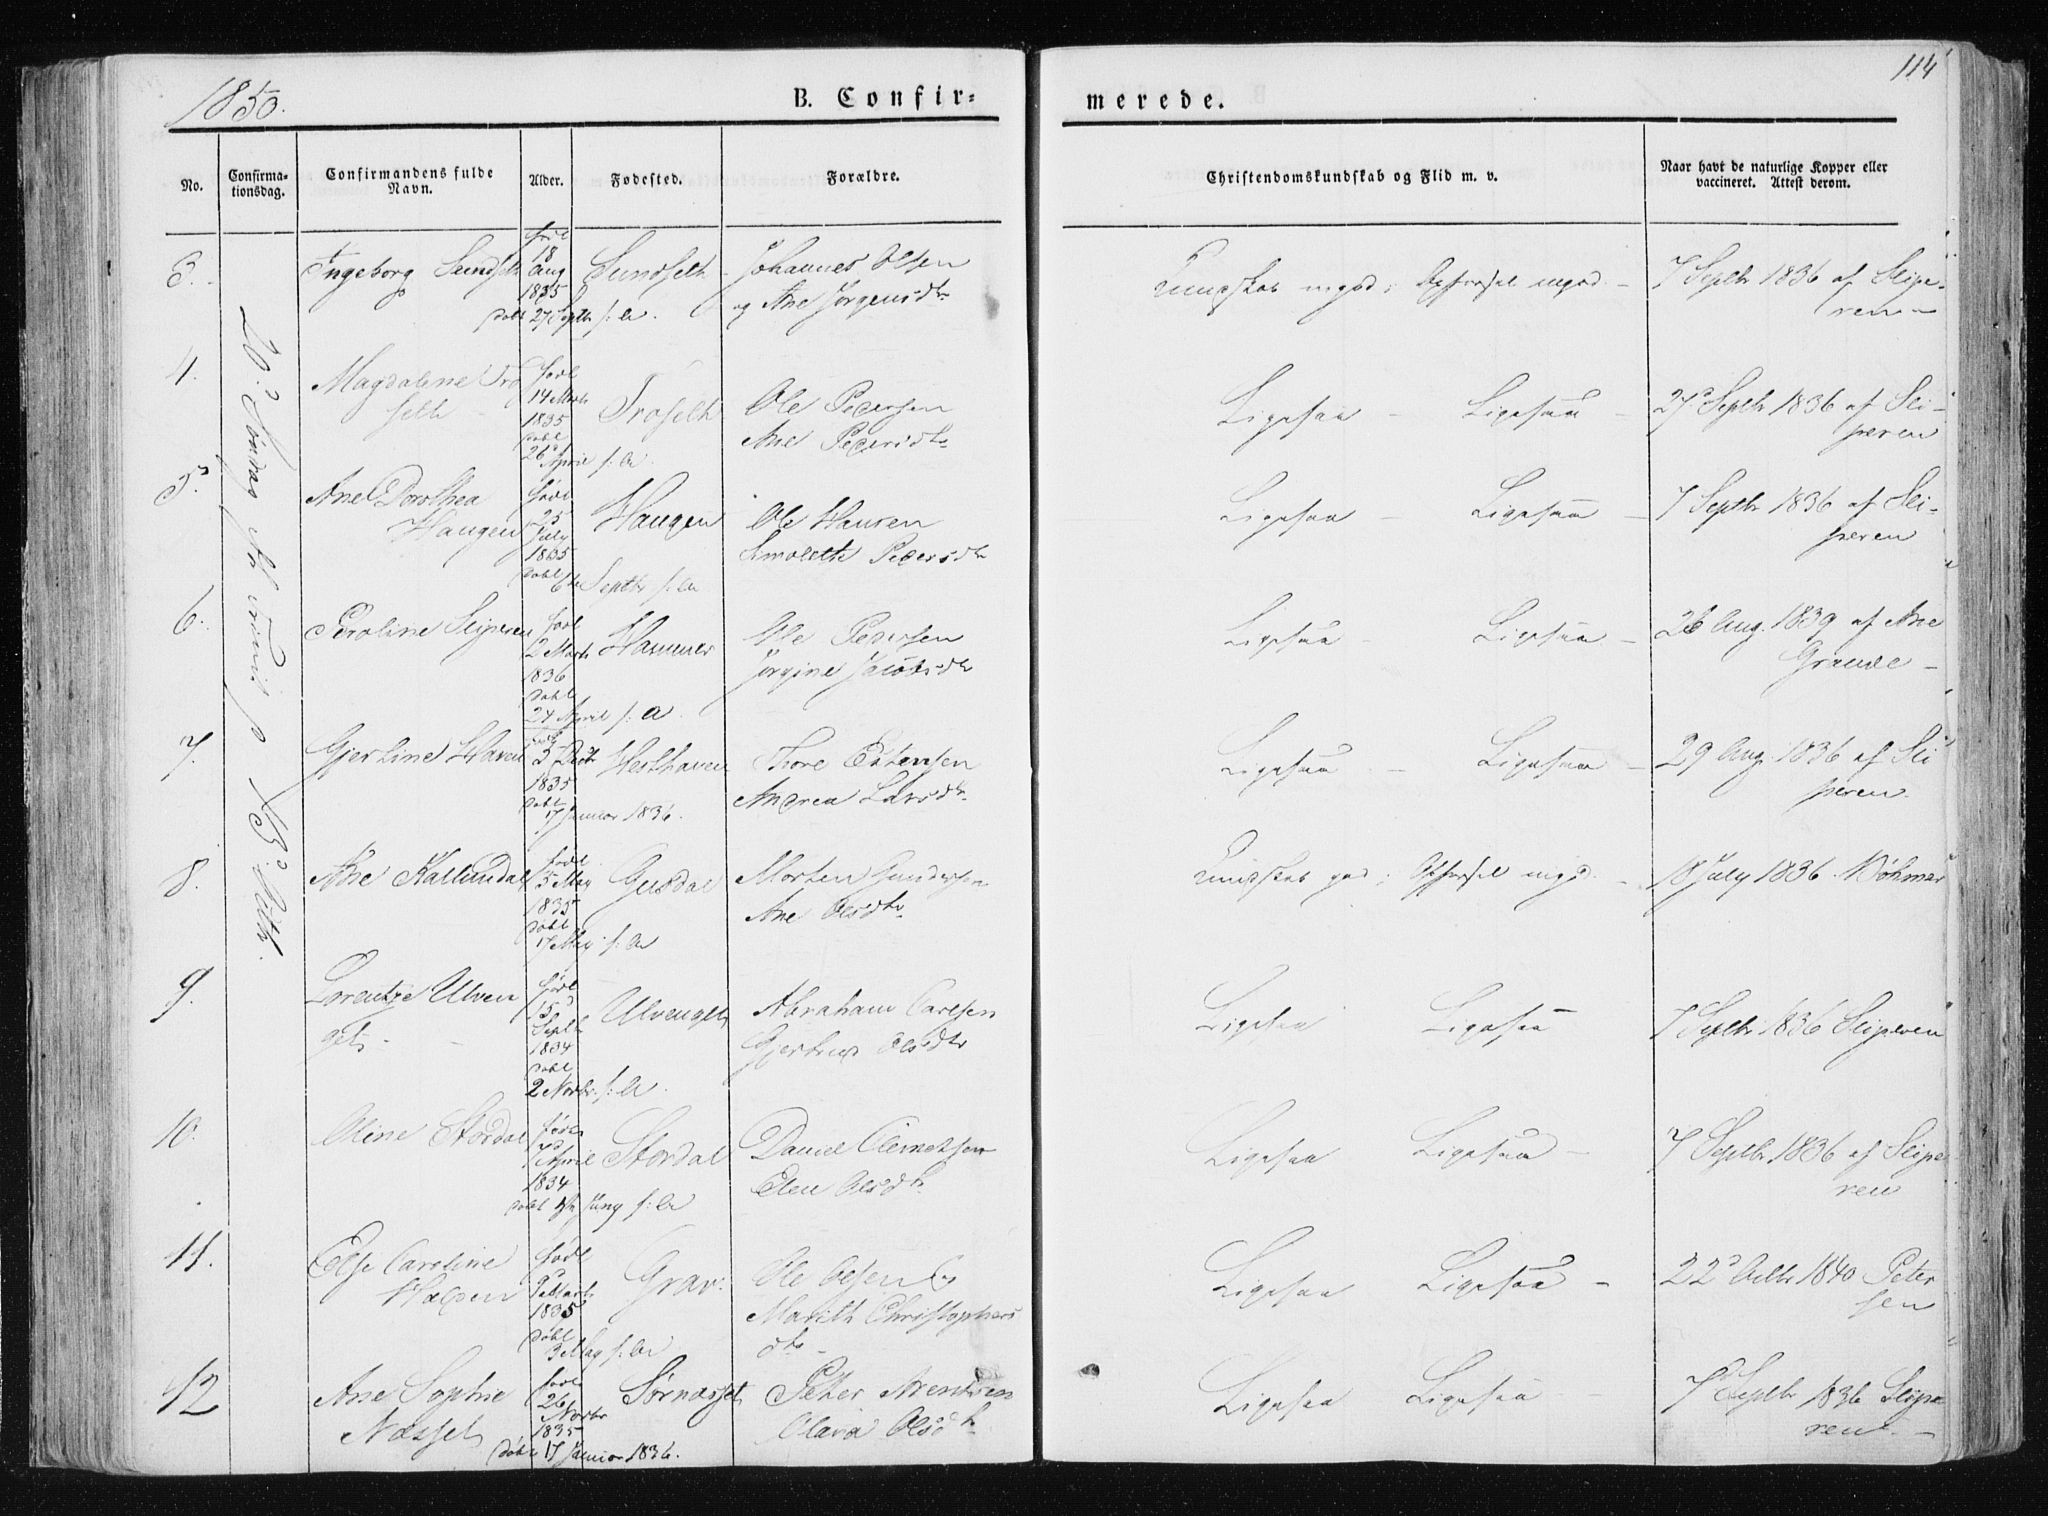 1850.
B. Confir-
merede.
114
No.
Confirma-
tionsdag.
Confirmandens fulde
Navn.
Alder.
Fødested.
Forældre.
Christendomskundskab og Flid m. v.
Naar havt de naturlige Kopper eller
vaccineret. Attest derom.
3.
Ingeborg Sundseth
født
18
Aug
1835
døbt 27 Septbr s: A.
Sundseth
Johannes Olsen
og Ane Jørgensdtr
Kundskab mgod; Opførsel mgod
7 Septbr 1836 af Slipe-
ren
4.
Magdalene Trø
seth
født
14 Marts
1835
døbt
26 April s: A.
Trøseth
Ole Pedersen
Ane Pedersdtr
Ligesaa - Ligesaa -
27 Septbr 1836 af Sli-
peren
5.
Ane Dorothea
Haugen
født
25
July
1835
døbt 6te Septbr s: A
Haugen
Ole Hansen
Pedersdtr
Ligesaa - Ligesaa -
7 Septbr 1836 af Sli-
peren
6.
Peroline Sliperen
født
2 Marts
1836
døbt
24 April s: A.
Hammer
Ole Pedersen
Jørgine Jacobsdtr
Ligesaa - Ligesaa -
26 Aug. 1839 af Ane
Grande
7.
Gjertine Haven
1835
døbt
17 Januar 1836.
Westhaven
Thore Estensen
Andrea Larsdtr
Ligesaa - Ligesaa -
29 Aug. 1836 af Sli
peren.
8.
Ane Kallundal
født
5 May
1835
døbt
17 May s: A
Gusdal
Morten Gundersen
Ane Olsdtr
Kundskab god; Opførsel mgd.
18 July 1836 Bøhmer
9.
Lorentze Ulven
get
født
15
Septbr
1834
døbt
2 Novbr. s: A
Ulvenget
Abraham Carlsen
Gjertrud Olsdtr
Ligesaa Ligesaa
7 Septbr 1836 Sliperen
10.
Oline Stordal
født
7 April
1834
døbt Juny s: A
Stordal
Daniel Clemetsen
Elen Olsdtr
Ligesaa Ligesaa -
7 Septbr 1836 af Slipe
ren
11.
Else Caroline
født
Marts
1835
døbt
3 May s: A
Grav.
Ole Olsen
Marith Christophers
dtr
Ligesaa Ligesaa -
22 Octbr 1840 Peter
sen
12
Ane Sophie
Næsset
født
26
Novbr
1835
døbt 17 Januar 1836.
Sørnæsset
Peter Arentsen
Olava Olsdtr
Ligesaa Ligesaa -
7 Septbr 1836 Slipe
ren -